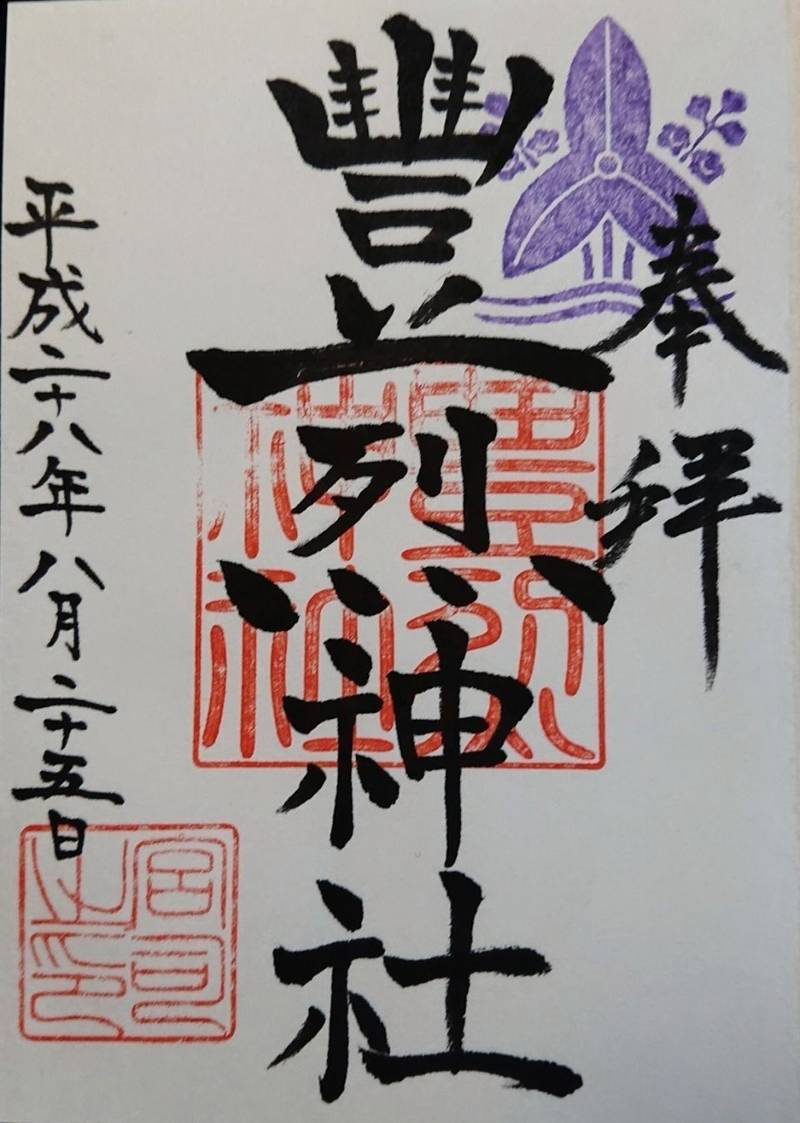 奉拝
豊烈神社
平成二十八年八月二十五日
豊烈神社
宮司之印